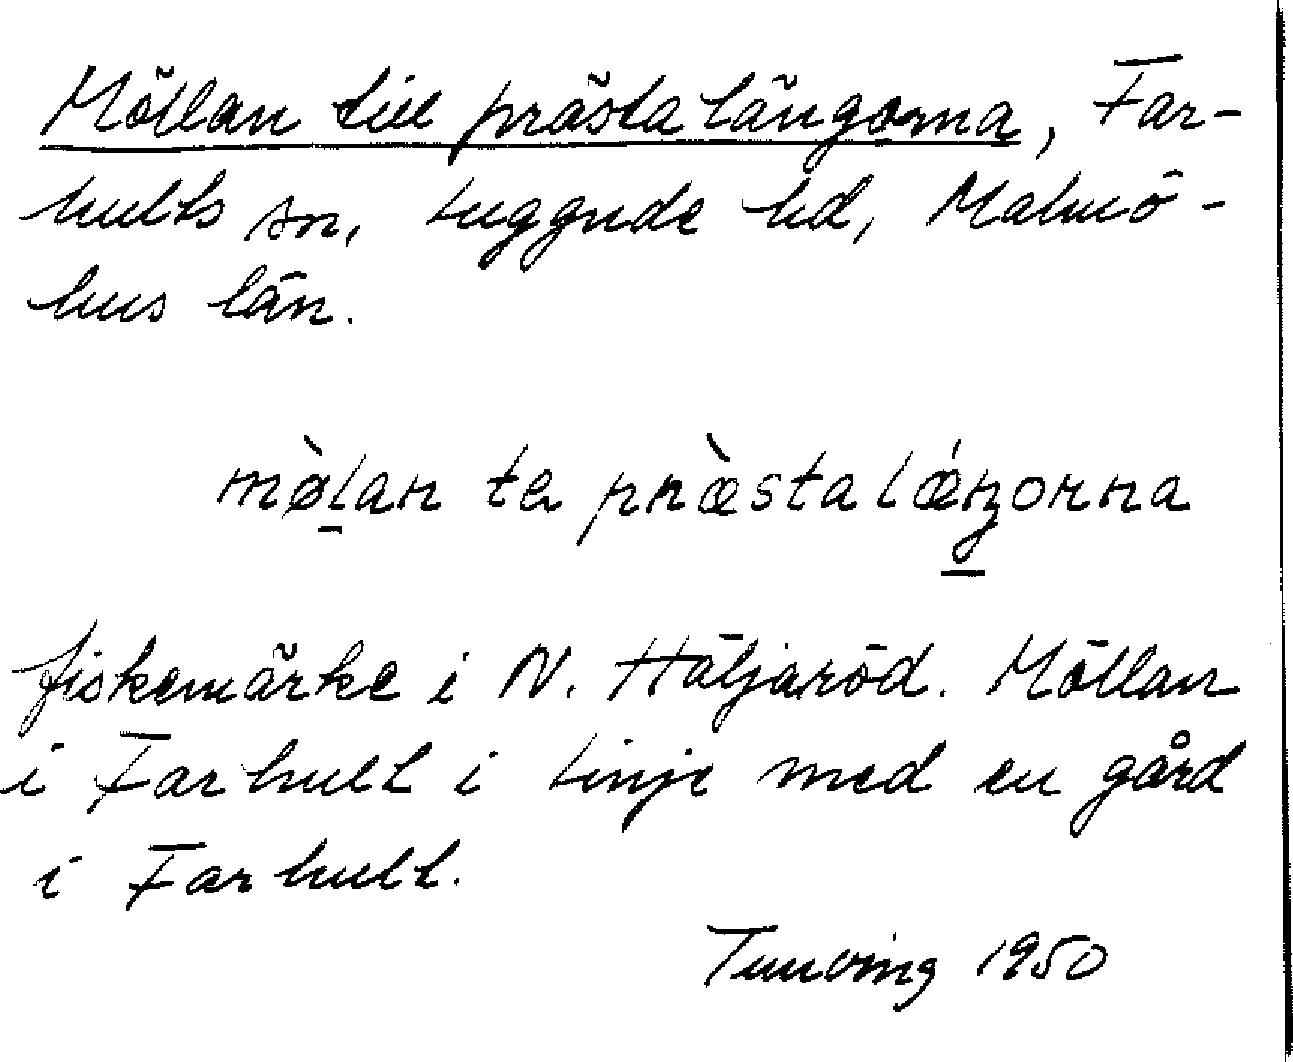 Möllan till prästalängorna, Far-
hults sn, Luggude hd, Malmö-
hus län.
mø̀lan te præ̀stalǽŋorna
fiskemärke i N. Häljaröd. Möllan
i Farhult i Linje med en gård
i Farhult.
Tunving 1950